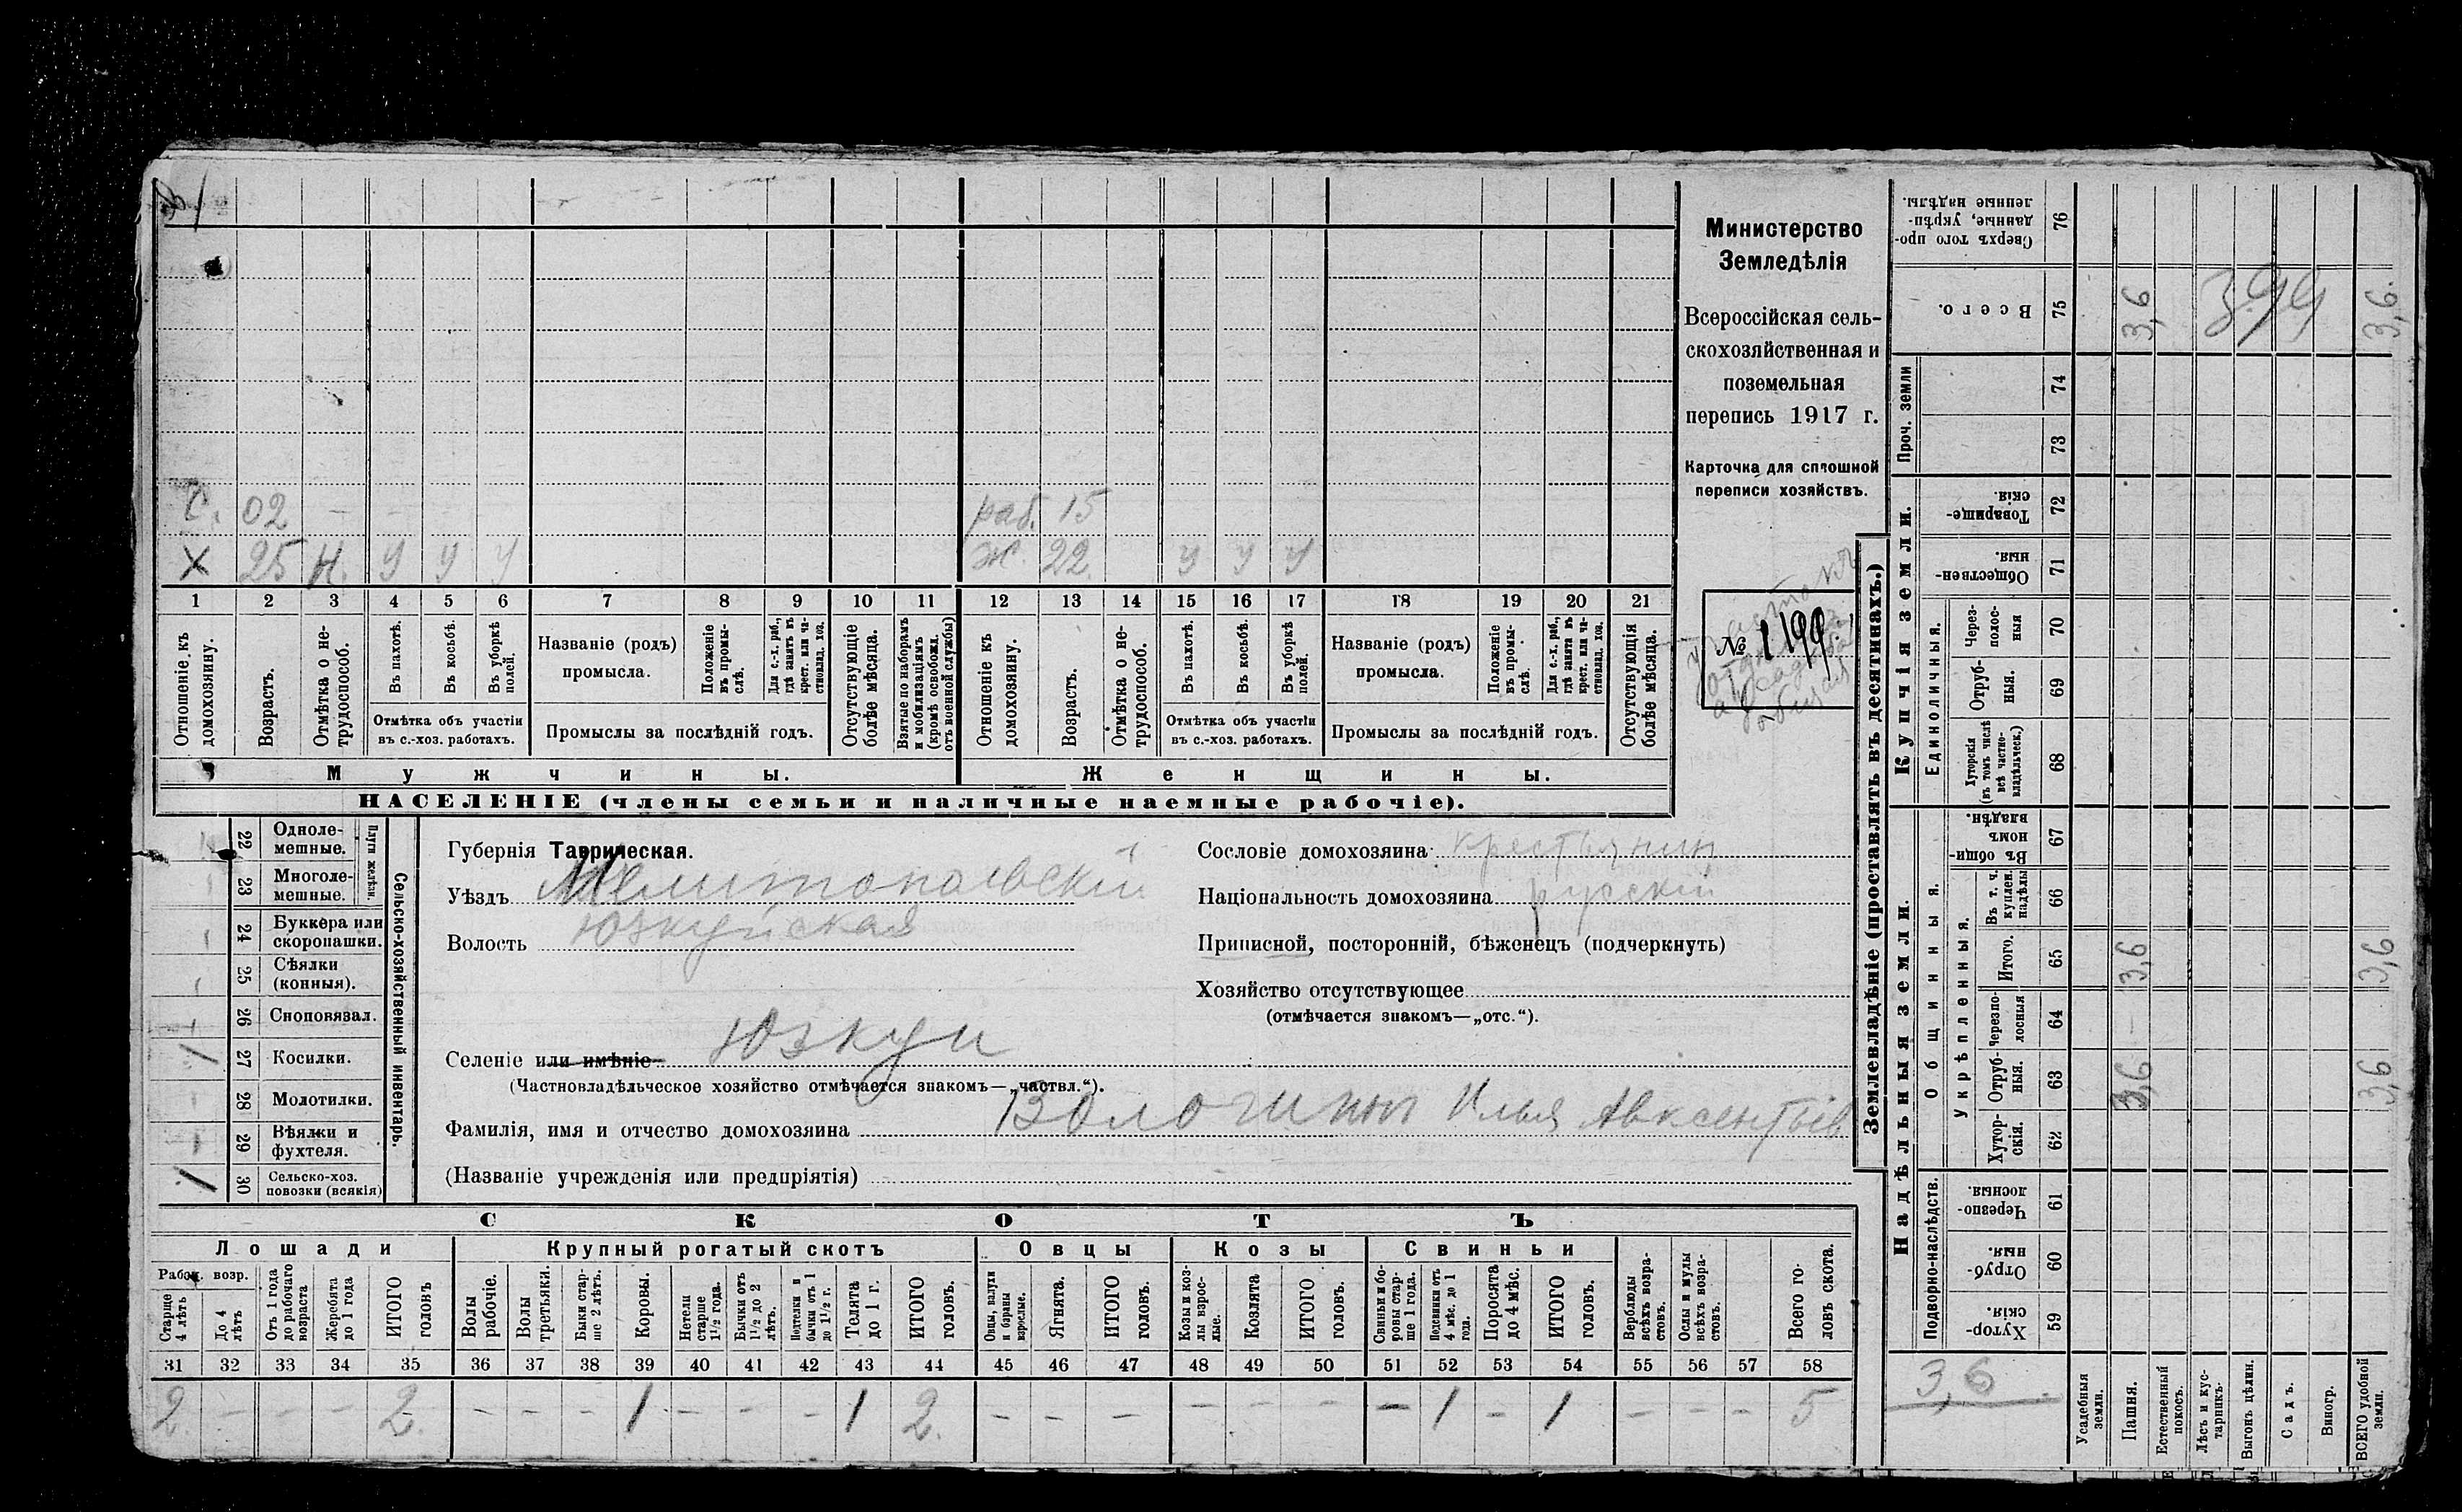 Министерство
Земледѣлія
Всероссійская сель-
скохозяйственная и
поземельная
перепись 1917 г.
Карточка для сплошной
переписи хозяйствъ.
№ 199
С. 02 – – – –
раб. 15
Х 25 Н. У У У
Ж. 22 У У У
1 2 3 4 5 6 7 8 9 10 11 12 13 14 15 16 17 18 19 20 21
Отношеніе къ домохозяину.
Возрастъ.
Отмѣтка о не-трудоспособ.
Въ пахотѣ.
Въ косьбѣ.
Въ уборкѣ полей.
Отмѣтка объ участіи
въ с.-хоз. работахъ.
Названіе (родъ)
промысла.
Положеніе въ промы-слѣ.
Для с.-х. раб., гдѣ занятъ въ крест. или ча-стновлад. хоз.
Промыслы за послѣдній годъ.
Отсутствующіе болѣе мѣсяца.
Взятые по наборамъ и мобилизаціямъ (кромѣ освобожд. отъ военной службы)
Отношеніе къ домохозяину.
Возрастъ.
Отмѣтка о не-трудоспособ.
Въ пахотѣ.
Въ косьбѣ.
Въ уборкѣ полей.
Отмѣтка объ участіи
въ с.-хоз. работахъ.
Названіе (родъ)
промысла.
Положеніе въ промы-слѣ.
Для с.-х. раб., гдѣ занятъ въ крест. или ча-стновлад. хоз.
Промыслы за послѣдній годъ.
Отсутствующія болѣе мѣсяца.
Мужчины.
Женщины.
НАСЕЛЕНІЕ (члены семьи и наличные наемные рабочіе).
Сельско-хозяйственный инвентарь.
Плуги желѣзн.
22 Одноле-мешные.
23 Многоле-мешные.
24 Буккера или скоропашки.
25 Сѣялки (конныя).
26 Сноповязал.
27 Косилки.
28 Молотилки.
29 Вѣялки и фухтеля.
30 Сельско-хоз. повозки (всякія)
Губернія Таврическая.
Уѣздъ Мелитопольскій
Волость Юзкуйская
Селеніе или имѣніе Юзкуи
(Частновладѣльческое хозяйство отмѣчается знакомъ—„частвл.“).
Фамилія, имя и отчество домохозяина Вологинъ Илья Авксентьев
(Названіе учрежденія или предпріятія)
Сословіе домохозяина крестьянин
Національность домохозяина русскій
Приписной, посторонній, бѣженецъ (подчеркнуть)
Хозяйство отсутствующее
(отмѣчается знакомъ—„отс.“).
СКОТЪ
Лошади
Крупный рогатый скотъ
Овцы
Козы
Свиньи
Рабоч. возр.
Старше 4 лѣтъ
До 4 лѣтъ
Отъ 1 года до рабочаго возраста
Жеребята до 1 года
ИТОГО головъ
Волы рабочіе.
Волы третьяки.
Быки стар-ше 2 лѣтъ.
Коровы.
Нетели старше 1½ года.
Бычки отъ 1½ до 2 лѣтъ.
Подтелки и бычки отъ 1 до 1½ г.
Телята до 1 г.
ИТОГО головъ.
Овцы, валухи и бараны взрослые.
Ягнята.
ИТОГО головъ.
Козы и коз-лы взрос-лые.
Козлята
ИТОГО головъ.
Свиньи и бо-ровы стар-ше 1 года.
Подсвинки отъ 4 мѣс. до 1 года.
Поросята до 4 мѣс.
ИТОГО головъ.
Верблюды всѣхъ возра-стовъ.
Ослы и мулы всѣхъ возра-стовъ.
Всего го-ловъ скота.
31 32 33 34 35 36 37 38 39 40 41 42 43 44 45 46 47 48 49 50 51 52 53 54 55 56 57 58
2 – – – 2 – – – 1 – – – 1 2 – – – – – – – 1 – 1 – – – 5
Землевладѣніе (проставлять въ десятинахъ.)
Сверхъ того про-данные, укрѣп-ленные надѣлы. 76
Всего. 75 3,6 3,6
399
Проч. земли
74
73
Купчія земли.
Товарище-скія. 72
Обществен-ныя. 71
Единоличныя.
Через-полос-ныя 70
Отруб-ныя. 69
Хуторскія (въ томъ числѣ всѣ частно-владѣльческ.) 68
Надѣльныя земли.
Общинныя.
Въ общин-номъ владѣн. 67
Укрѣпленныя.
Въ т. ч. куплен. надѣлы 66
Итого. 65 3,6 3,6
Черезпо-лосныя 64 –
Отруб-ныя. 63 3,6 3,6
Хутор-скія. 62
Подворно-наслѣдств.
Черезпо-лосныя. 61
Отруб-ныя. 60
Хутор-скія. 59
3,6
Усадебныя земли.
Пашня.
Естественный покосъ.
Лѣсъ и кус-тарникъ.
Выгонъ цѣлин.
Садъ.
Виногр.
ВСЕГО удобной земли.